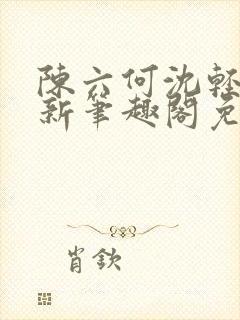 陳六何沈輕
新筆趣閣免
肖欽